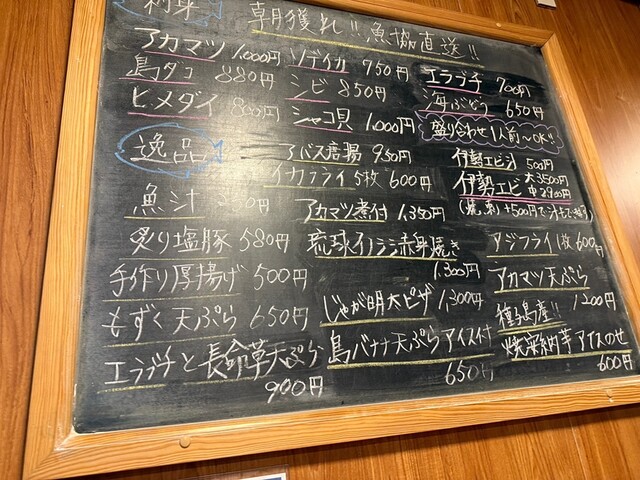 刺身
朝獲れ!!魚協直送!!
アカマツ 1,000円
島ダコ 880円
ヒメダイ 800円
ソデイカ 750円
シビ 850円
シャコ貝 1,000円
エラブチ 700円
海ぶどう 650円
盛り合わせ1人前〜OK!!
逸品
魚汁
炙り塩豚 580円
手作り厚揚げ 500円
もずく天ぷら 650円
エラブチと長命草天ぷら
900円
アバス唐揚 950円
イカフライ5枚 600円
アカマツ煮付 1,350円
琉球イノシシ赤身焼き
1,300円
じゃが明太ピザ 1,300円
島バナナ天ぷらアイス付
650円
伊勢エビ汁 500円
伊勢エビ 大3500円
中2900円
+500円で汁も
アジフライ1枚 600円
アカマツ天ぷら
1,200円
種子島産!!
焼安納芋アイスのせ
600円